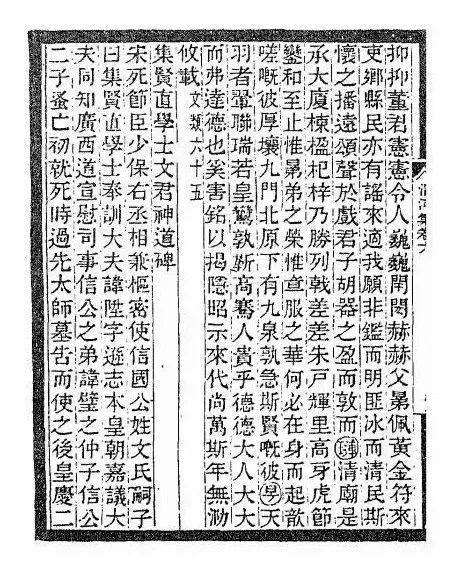 抑抑董君憲憲令人巍巍赫赫父晜佩黃金符來
吏鄉縣民亦有謠來適我願非鑑而明匪冰而清民斯
懷之播遠頌聲於戲君子胡器之盈而敦而璉清廟是
承大廈棟楹杞梓乃勝列戟差差朱戶輝里高牙虎節
鑾和至止惟晜弟之榮惟章服之華何必在身而起歆
嗟嘅彼厚壤九門北原下有九泉孰急斯賢嘅彼學天
羽者翬聯瑞若皇鸞孰靳高騫人貴乎德德大人大大
而弗達德也奚害銘以揭隱昭示來代尚萬斯年無泐
攸載 文類六十五
集賢直學士文君神道碑
宋死節臣少保右丞相兼樞密使信國公姓文氏嗣子
曰集賢直學士奉訓大夫諱陞字遜志本皇朝嘉議大
夫同知廣西道宣慰司事信公之弟諱璧之仲子信公
二子蚤亡初就死時過先太師墓告而使之後皇慶二